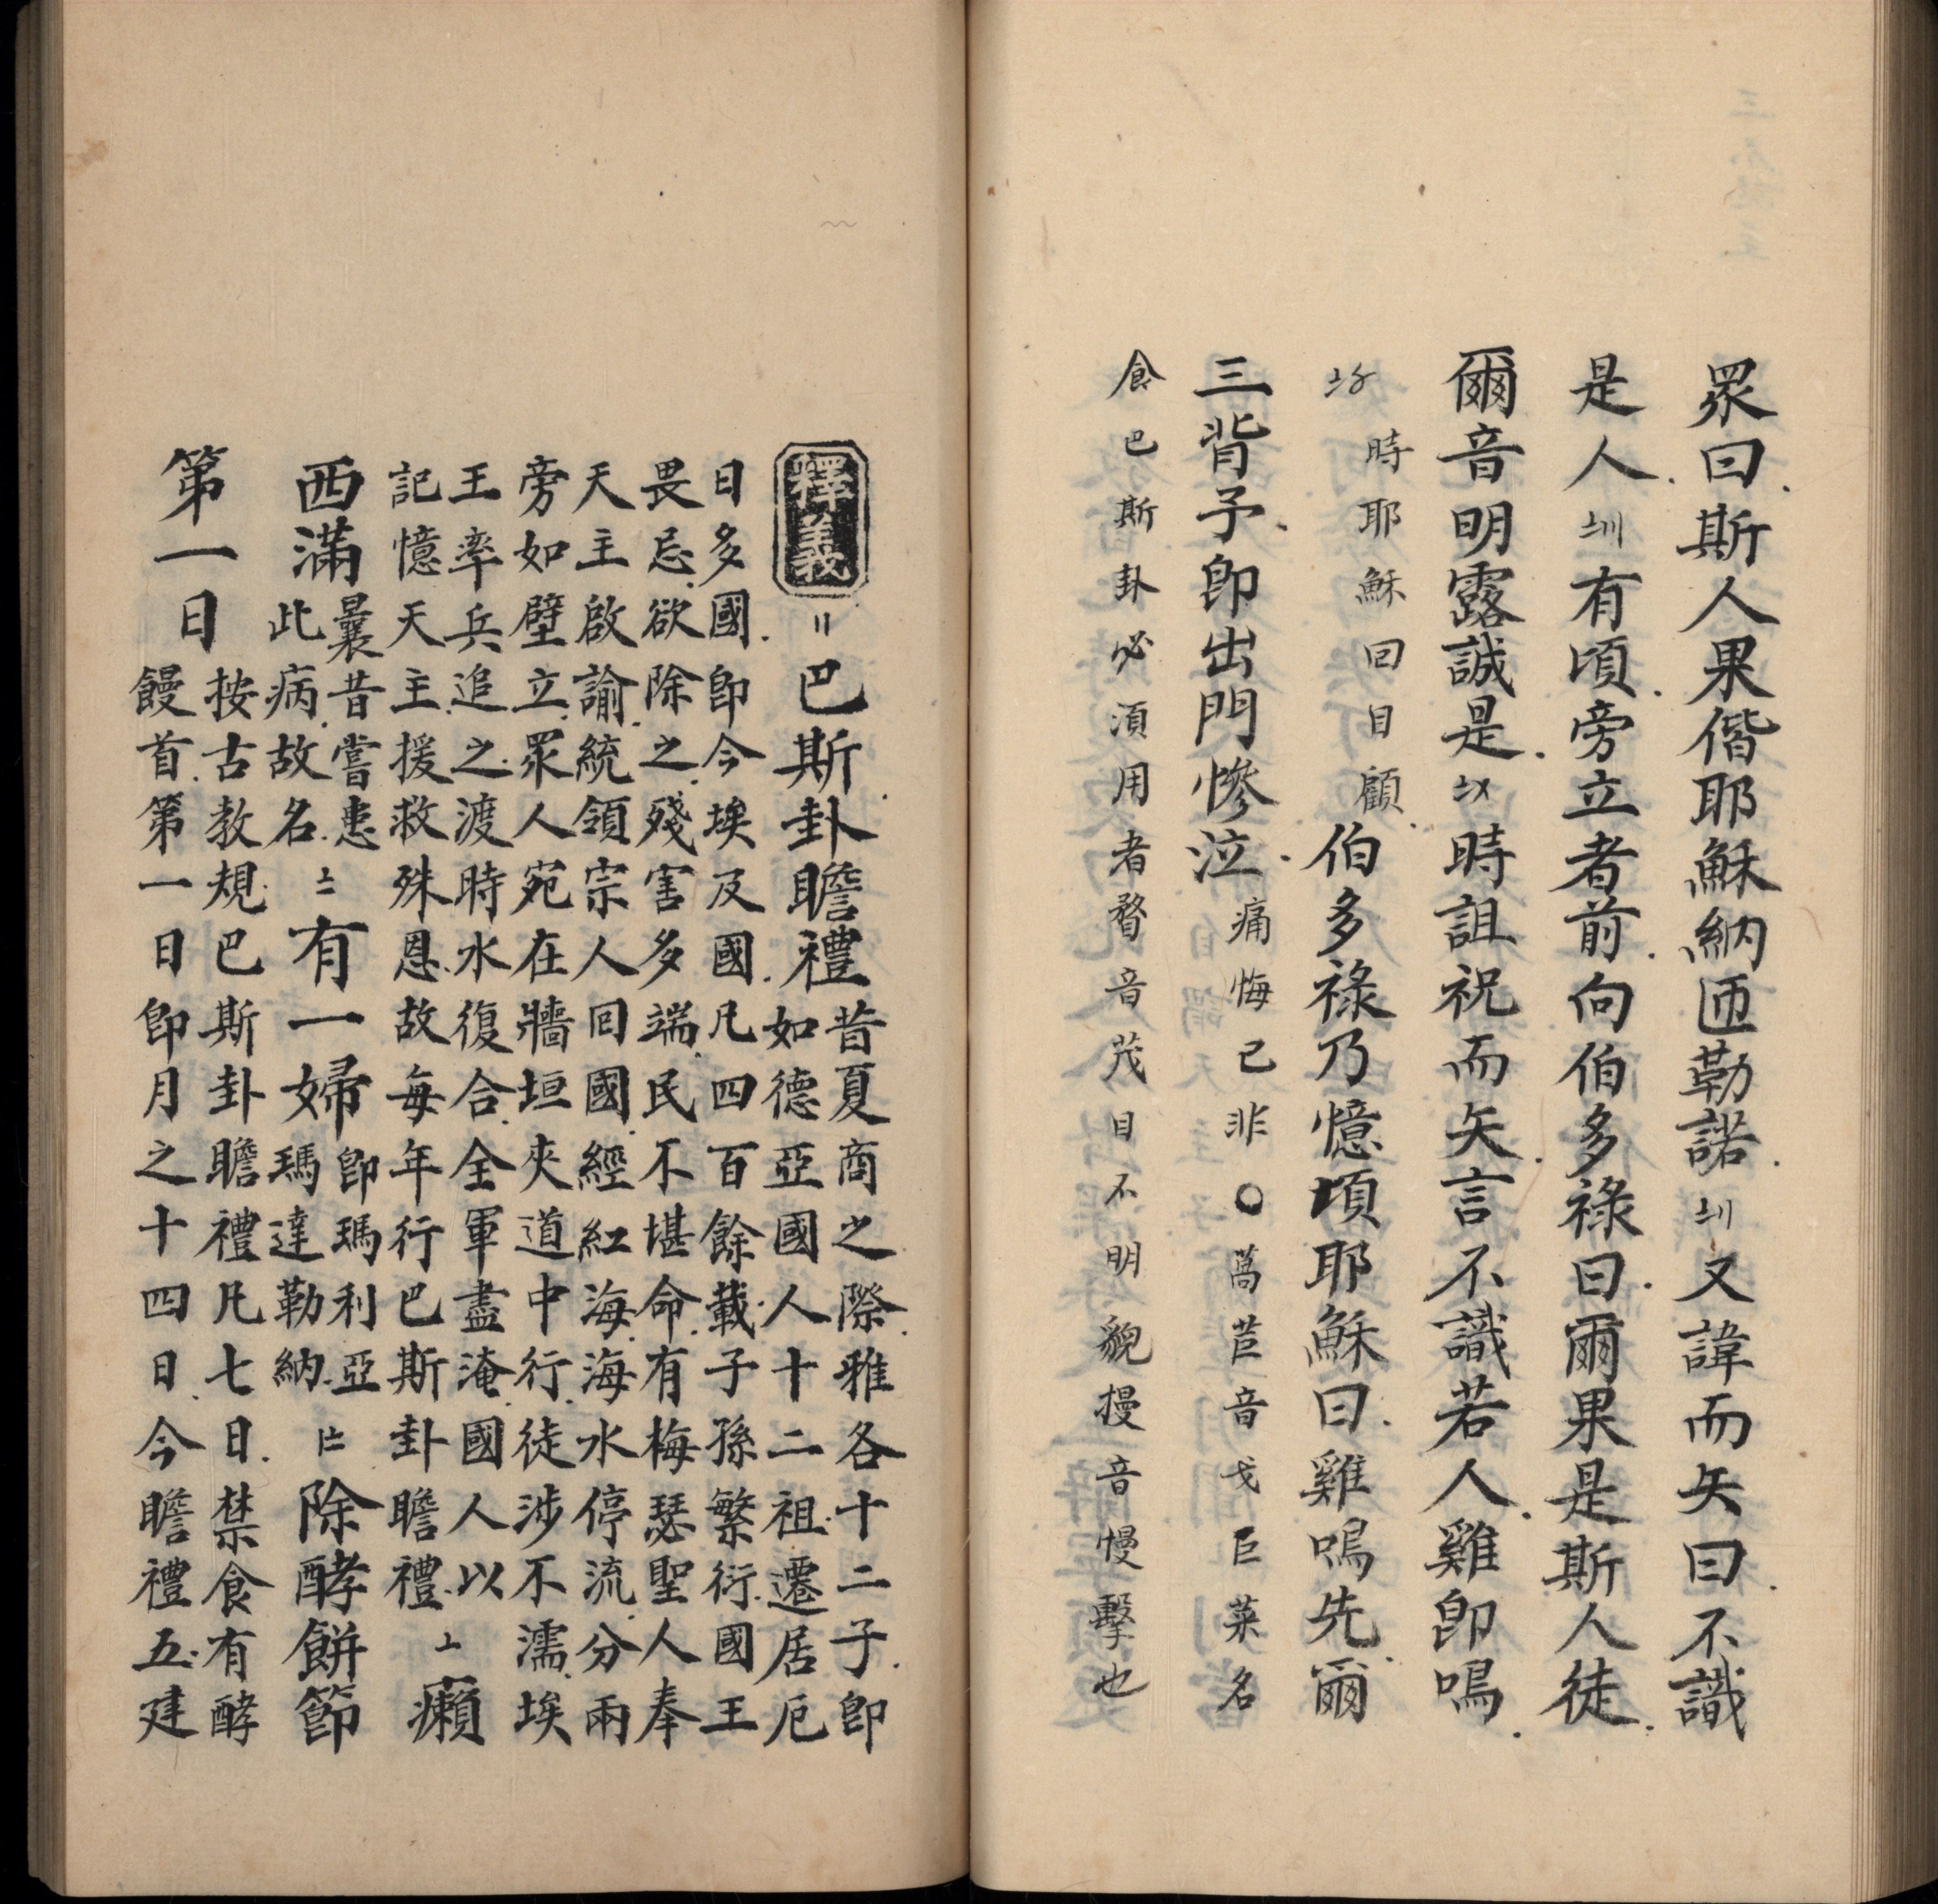 眾曰斯人果偕耶穌納匝勒諾〧〢又諱而矢曰不識
是人〧〣有頃旁立者前向伯多祿曰爾果是斯人徒
爾音明露誠是〧〤時詛祝而矢言不識若人雞即鳴
〧〥時耶穌回目顧伯多祿乃憶頃耶穌曰雞鳴先爾
三背予即出門慘泣痛悔己非〇萵苣音戈巨菜名
食巴斯卦必須用者瞀音茂目不明貌摱音慢擊也
釋義〢巴斯卦瞻禮昔夏商之際雅各十二子即
如德亞國人十二祖遷居厄
日多國即今埃及國凡四百餘載子孫繁衍國王
畏忌欲除之殘害多端民不堪命有梅瑟聖人奉
天主啟諭統領宗人回國經紅海海水停流分兩
旁如壁立眾人宛在牆垣夾道中行徒涉不濡埃
王率兵追之渡時水復合全軍盡淹國人以
記憶天主援救殊恩故每年行巴斯卦瞻禮〦癩
西滿曩昔嘗患此病故名〧有一婦即瑪利亞瑪達勒納〡〧除酵餅節
第一日按古教規巴斯卦瞻禮凡七日禁食有酵
饅首第一日即月之十四日今瞻禮五建